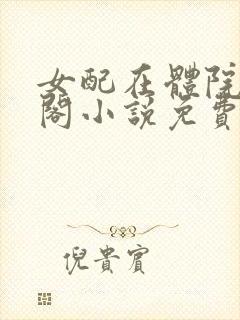 女配在體院
閣小說免費
倪貴賓